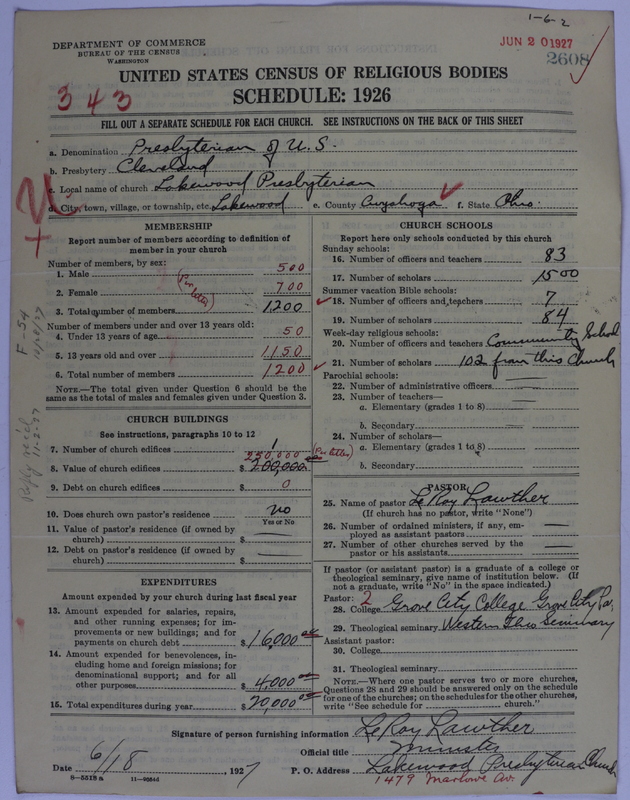 1-6-2
DEPARTMENT OF COMMERCE
BUREAU OF THE CENSUS
WASHINGTON
JUN 20 1927
2608
UNITED STATES CENSUS OF RELIGIOUS BODIES
343
SCHEDULE: 1926
FILL OUT A SEPARATE SCHEDULE FOR EACH CHURCH. SEE INSTRUCTIONS ON THE BACK OF THIS SHEET
a. Denomination Presbyterian of U.S.
b. Presbytery Cleveland
c. Local name of church Lakewood Presbyterian
d. City, town, village, or township, etc. Lakewood e. County Cuyahoga f. State Ohio.
MEMBERSHIP
Report number of members according to definition of
member in your church
Number of members, by sex:
1. Male 500
2. Female 700
(Per letter)
3. Total number of members 1200
Number of members under and over 13 years old:
4. Under 13 years of age 50
5. 13 years old and over 1150
6. Total number of members 1200
NOTE.—The total given under Question 6 should be
the same as the total of males and females given under Question 3.
F-54
10/28/27
Reply rec'd
11-2-27
CHURCH BUILDINGS
See instructions, paragraphs 10 to 12
7. Number of church edifices 1
250,000 (Per letter)
8. Value of church edifices $ 200,000
9. Debt on church edifices $ 0
10. Does church own pastor's residence? No
Yes or No
11. Value of pastor's residence (if owned by
church) $
12. Debt on pastor's residence (if owned by
church) $
EXPENDITURES
Amount expended by your church during last fiscal year
13. Amount expended for salaries, repairs,
and other running expenses; for im-
provements or new buildings; and for
payments on church debt $ 16,000 00
14. Amount expended for benevolences, in-
cluding home and foreign missions; for
denominational support; and for all
other purposes $ 4,000 00
15. Total expenditures during year $ 20,000 00
CHURCH SCHOOLS
Report here only schools conducted by this church
Sunday schools:
16. Number of officers and teachers 83
17. Number of scholars 1500
Summer vacation Bible schools:
18. Number of officers and teachers 7
19. Number of scholars 84
Week-day religious schools:
20. Number of officers and teachers Community School
21. Number of scholars 102 from this Church
Parochial schools:
22. Number of administrative officers
23. Number of teachers—
a. Elementary (grades 1 to 8)
b. Secondary
24. Number of scholars—
a. Elementary (grades 1 to 8)
b. Secondary
PASTOR
25. Name of pastor Le Roy Lawther
(If church has no pastor, write "None")
26. Number of ordained ministers, if any, em-
ployed as assistant pastors
27. Number of other churches served by the
pastor or his assistants
If pastor (or assistant pastor) is a graduate of a college or
theological seminary, give name of institution below. (If
not a graduate, write "No" in the space indicated.)
Pastor: 2
28. College Grove City College Grove City Pa.
29. Theological seminary Western Theo Seminary
Assistant pastor:
30. College
31. Theological seminary
NOTE.—Where one pastor serves two or more churches,
Questions 28 and 29 should be answered only on the schedule
for one of the churches; on the schedules for the other churches,
write "See schedule for church."
Signature of person furnishing information Le Roy Lawther
Official title Minister
Date 6/18, 1927 P. O. Address Lakewood Presbyterian Church
1479 Marlowe Av.
8-5518 a